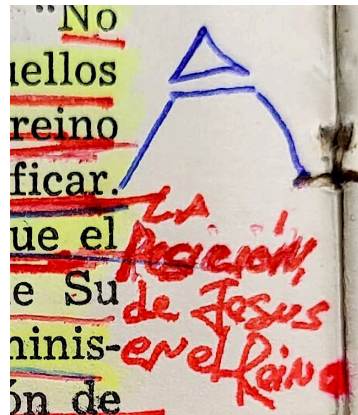 "No
uellos
reino
ficar.
ue el
e Su
ninis-
ón de
LA
Posición
de Jesus
en el Reino